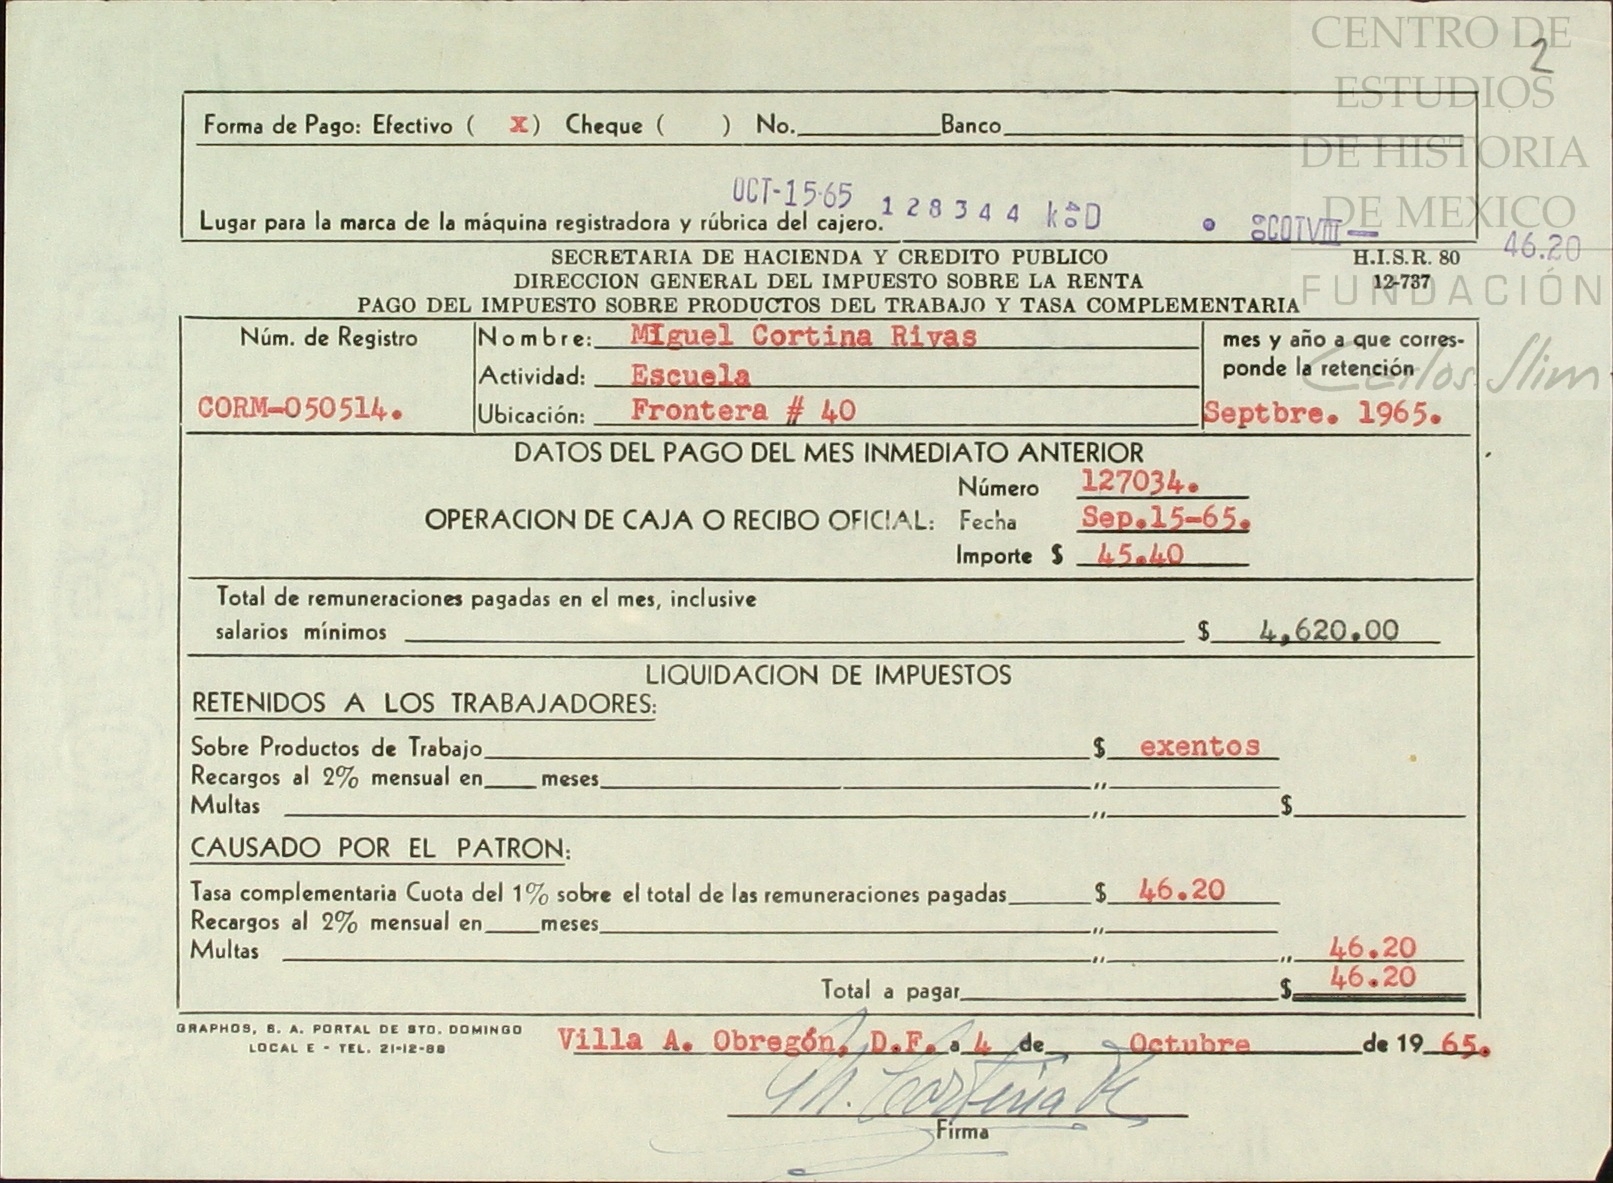 CENTRO DE
ESTUDIOS
DE HISTORIA
DE MEXICO
FUNDACIÓN
Carlos Slim
2
Forma de Pago: Efectivo ( X ) Cheque ( ) No.________Banco________
OCT-15-65 128344
46.20
Lugar para la marca de la máquina registradora y rúbrica del cajero.
SECRETARIA DE HACIENDA Y CREDITO PUBLICO H.I.S.R. 80
DIRECCION GENERAL DEL IMPUESTO SOBRE LA RENTA 12-737
PAGO DEL IMPUESTO SOBRE PRODUCTOS DEL TRABAJO Y TASA COMPLEMENTARIA
Núm. de Registro
CORM-050514.
Nombre: MIguel Cortina Rivas
Actividad: Escuela
Ubicación: Frontera # 40
mes y año a que corres-
ponde la retención
Septbre. 1965.
DATOS DEL PAGO DEL MES INMEDIATO ANTERIOR
Número 127034.
OPERACION DE CAJA O RECIBO OFICIAL: Fecha Sep.15-65.
Importe $ 45.40
Total de remuneraciones pagadas en el mes, inclusive
salarios mínimos $ 4,620.00
LIQUIDACION DE IMPUESTOS
RETENIDOS A LOS TRABAJADORES:
Sobre Productos de Trabajo $ exentos
Recargos al 2% mensual en____meses ,,
Multas ,, $
CAUSADO POR EL PATRON:
Tasa complementaria Cuota del 1% sobre el total de las remuneraciones pagadas $ 46.20
Recargos al 2% mensual en____meses ,,
Multas ,, ,, 46.20
Total a pagar $ 46.20
GRAPHOS, S. A. PORTAL DE STO. DOMINGO
LOCAL E - TEL. 21-12-88
Villa A. Obregón, D.F. a 4 de Octubre de 19 65.
M. Cortina R
Firma